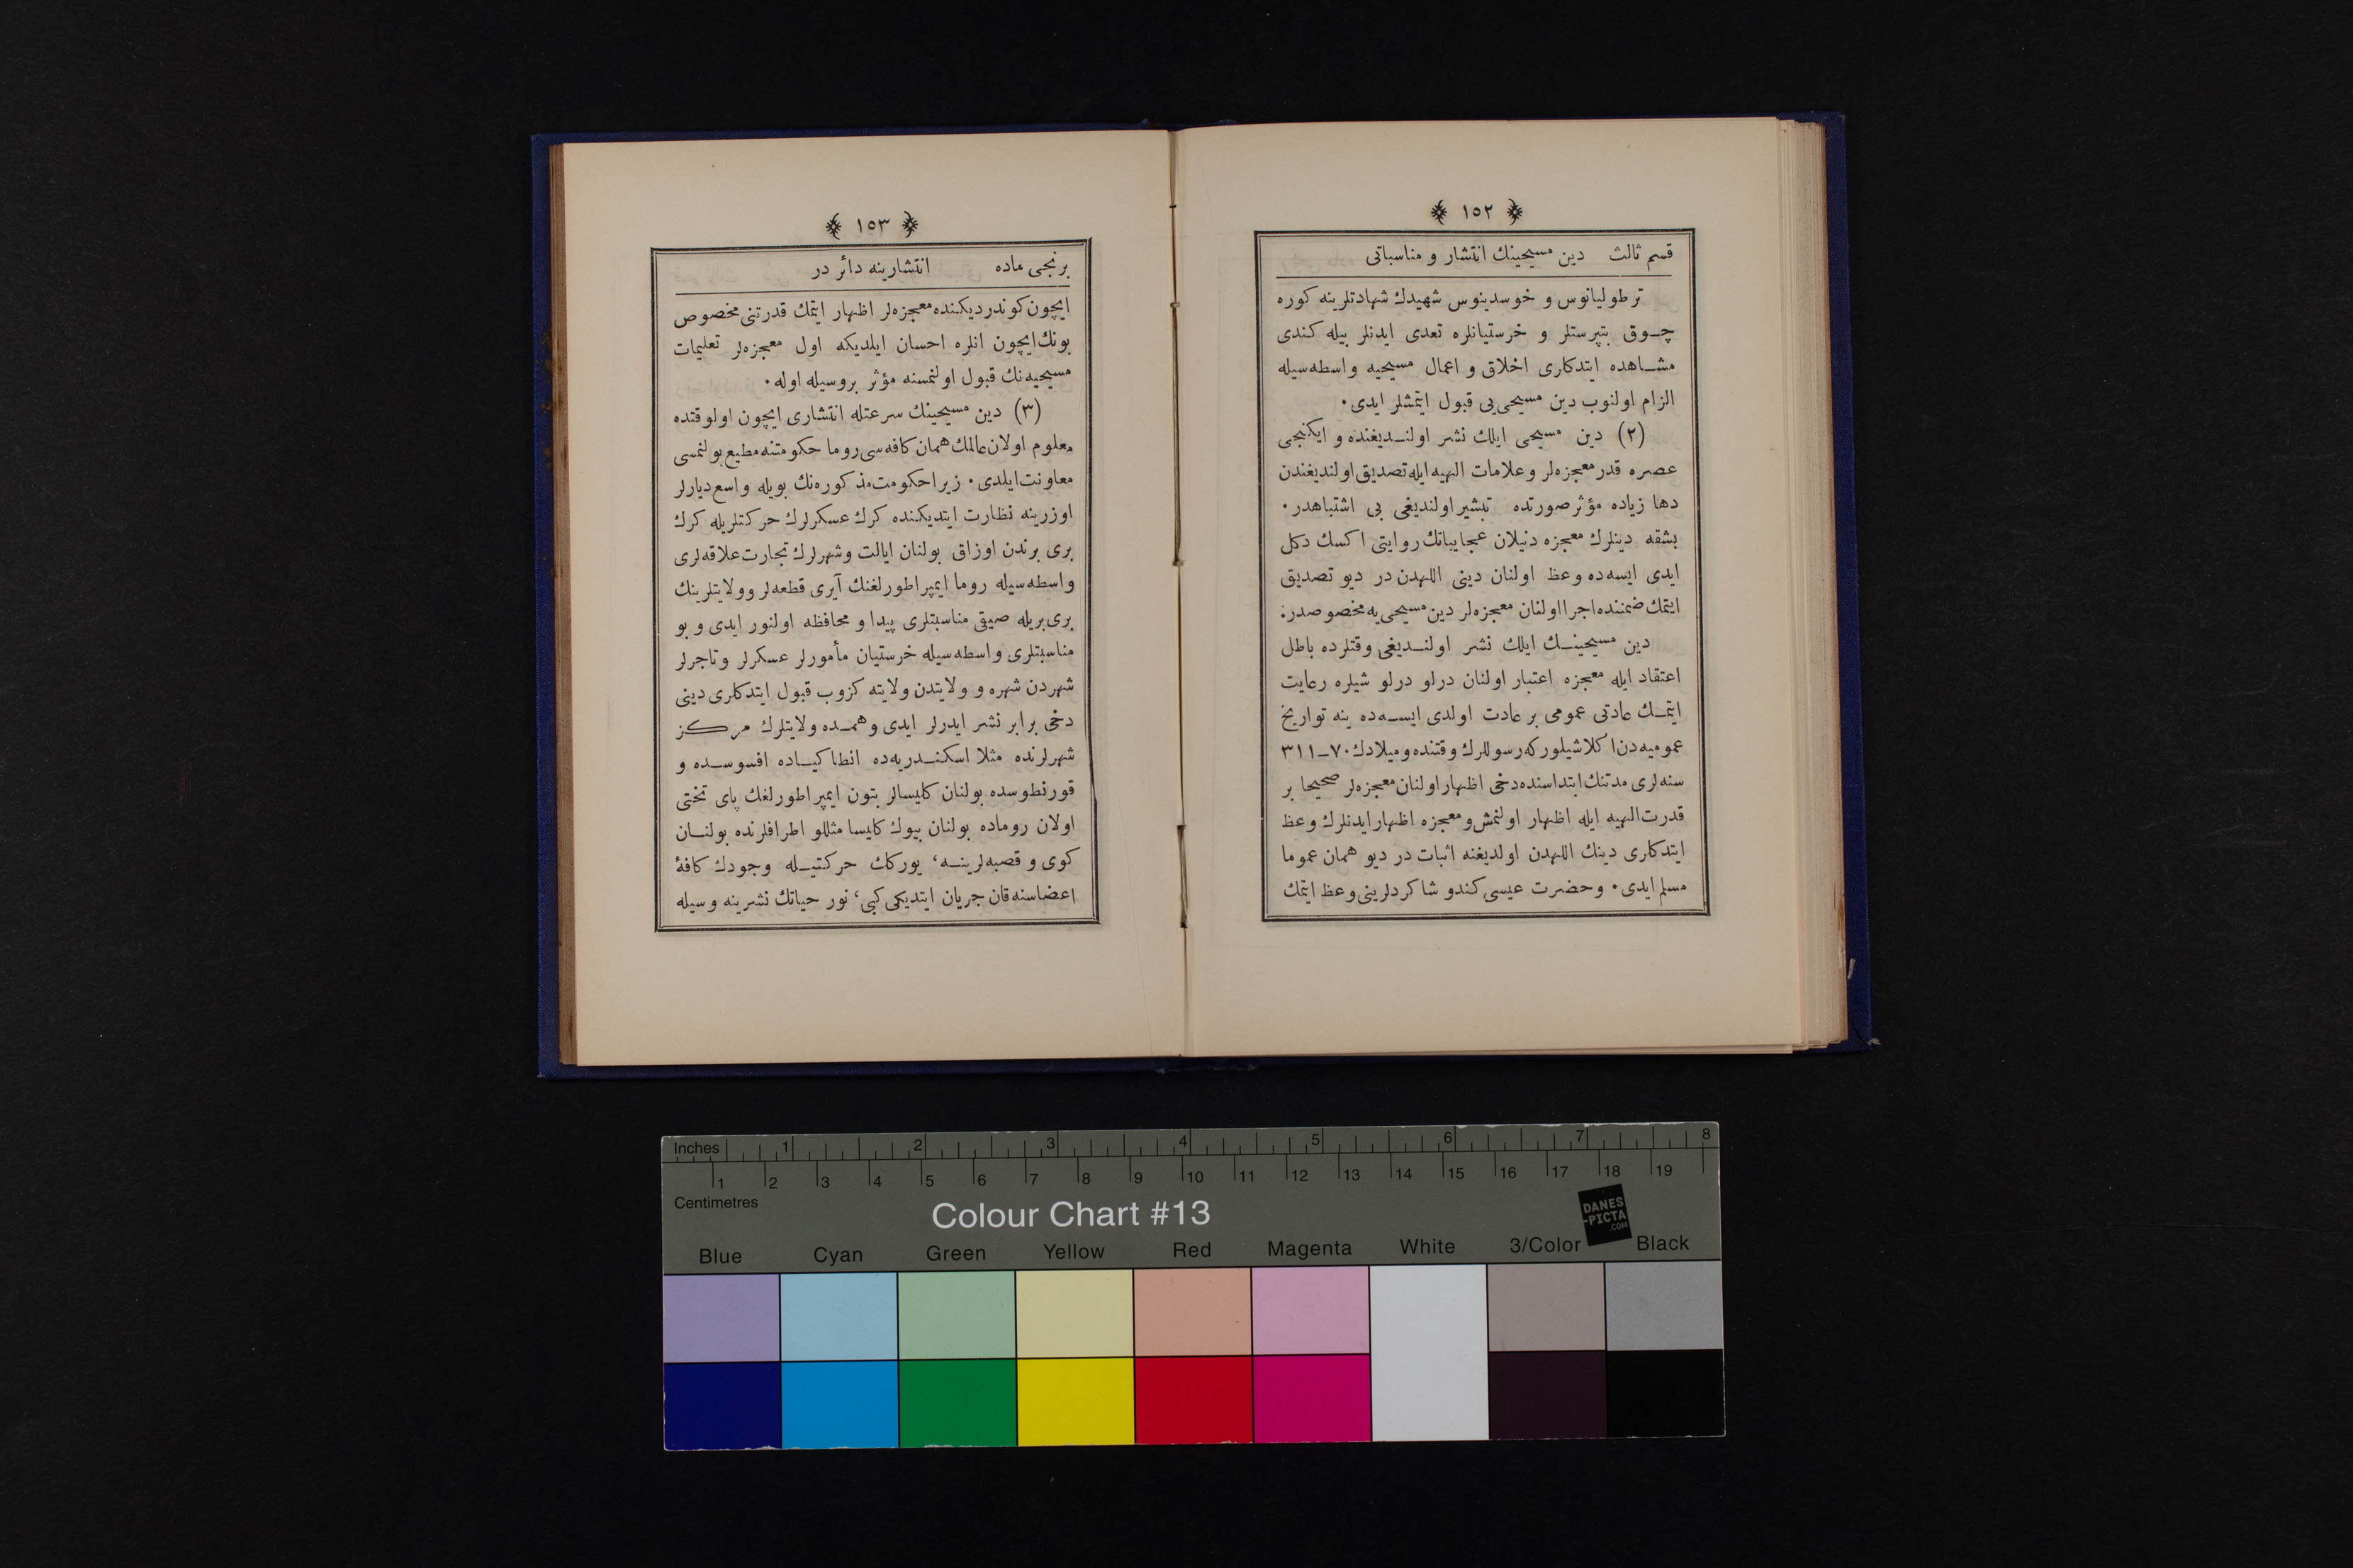 ﴿ ١٥٢ ﴾
قسم ثالث دین مسیحینك انتشار و مناسباتی
ترطولیانوس و خوسدینوس شهیدك شهادتلرینه كوره
چـوق بتپرستلر و خرستیانلره تعدی ایدنلر بیله كندی
مشـاهده ایتدكلری اخلاق و اعمال مسیحیه واسطه‌سیله
الزام اولنوب دین مسیحی‌یی قبول ایتمشلر ایدی ٠
(٢) دین مسیحی ایلك نشر اولنـدیغنده و ایكنجی
عصره قدر معجزه‌لر و علامات الهیه ایله تصدیق اولندیغندن
دها زیاده مؤثر صورتده تبشیر اولندیغی بی اشتباهدر ٠
بشقه دینلرك معجزه دنیلان عجایباتك روایتی اكسك دكل
ایدی ایسه‌ده وعظ اولنان دینی اللهدن در دیو تصدیق
ایتمك ضمننده اجرا اولنان معجزه‌لر دین مسیحی‌یه مخصوصدر:
دین مسیحینـك ایلك نشر اولنـدیغی وقتلرده باطل
اعتقاد ایله معجزه اعتبار اولنان درلو درلو شیلره رعایت
ایتمـك عادتی عمومی بر عادت اولدی ایسـه‌ده ینه تواریخ
عمومیه‌دن اكلاشیلور كه رسوللرك وقتنده و میلادك ٧٠ـ٣١١
سنه‌لری مدتنك ابتداسنده دخی اظهار اولنان معجزه‌لر صحیحا بر
قدرت الهیه ایله اظهار اولنمش و معجزه اظهار ایدنلرك وعظ
ایتدكلری دینك اللهدن اولدیغنه اثبات در دیو همان عموما
مسلم ایدی ٠ و حضرت عیسی كندو شاكردلرینی وعظ ایتمك
﴿ ١٥٣ ﴾
برنجی ماده انتشارینه دائر در
ایچون كوندردیكنده معجزه‌لر اظهار ایتمك قدرتنی مخصوص
بونك ایچون انلره احسان ایلدیكه اول معجزه‌لر تعلیمات
مسیحیه‌نك قبول اولنمسنه مؤثر بر وسیله اوله ٠
(٣) دین مسیحینك سرعتله انتشاری ایچون اولوقتده
معلوم اولان عالمك همان كافه‌سی روما حكومتنه مطیع بولنمسی
معاونت ایلدی ٠ زیرا حكومت مذكوره‌نك بویله واسع دیارلر
اوزرینه نظارت ایتدیكنده كرك عسكرلرك حركتلریله كرك
بری برندن اوزاق بولنان ایالت و شهرلرك تجارت علاقه‌لری
واسطه‌سیله روما ایمپراطورلغنك آیری قطعه‌لر و ولایتلرینك
بری بریله صیقی مناسبتلری پیدا و محافظه اولنور ایدی و بو
مناسبتلری واسطه‌سیله خرستیان مأمورلر عسكرلر و تاجرلر
شهردن شهره و ولایتدن ولایته كزوب قبول ایتدكلری دینی
دخی برابر نشر ایدرلر ایدی و همـده ولایتلرك مركـز
شهرلرنده مثلا اسكنـدریه‌ده انطاكیـاده افسوسـده و
قورنطوسده بولنان كلیسالر بتون ایمپراطورلغك پای تختی
اولان روماده بولنان بیوك كلیسا مثللو اطرافلرنده بولنـان
كوی و قصبه‌لرینـه، یوركك حركتیـله وجودك كافۀ
اعضاسنه قان جریان ایتدیكی كبی، نور حیاتك نشرینه وسیله
Inches 1 2 3 4 5 6 7 8
1 2 3 4 5 6 7 8 9 10 11 12 13 14 15 16 17 18 19
Centimetres
Colour Chart #13
DANES
-PICTA
.COM
Blue Cyan Green Yellow Red Magenta White 3/Color Black